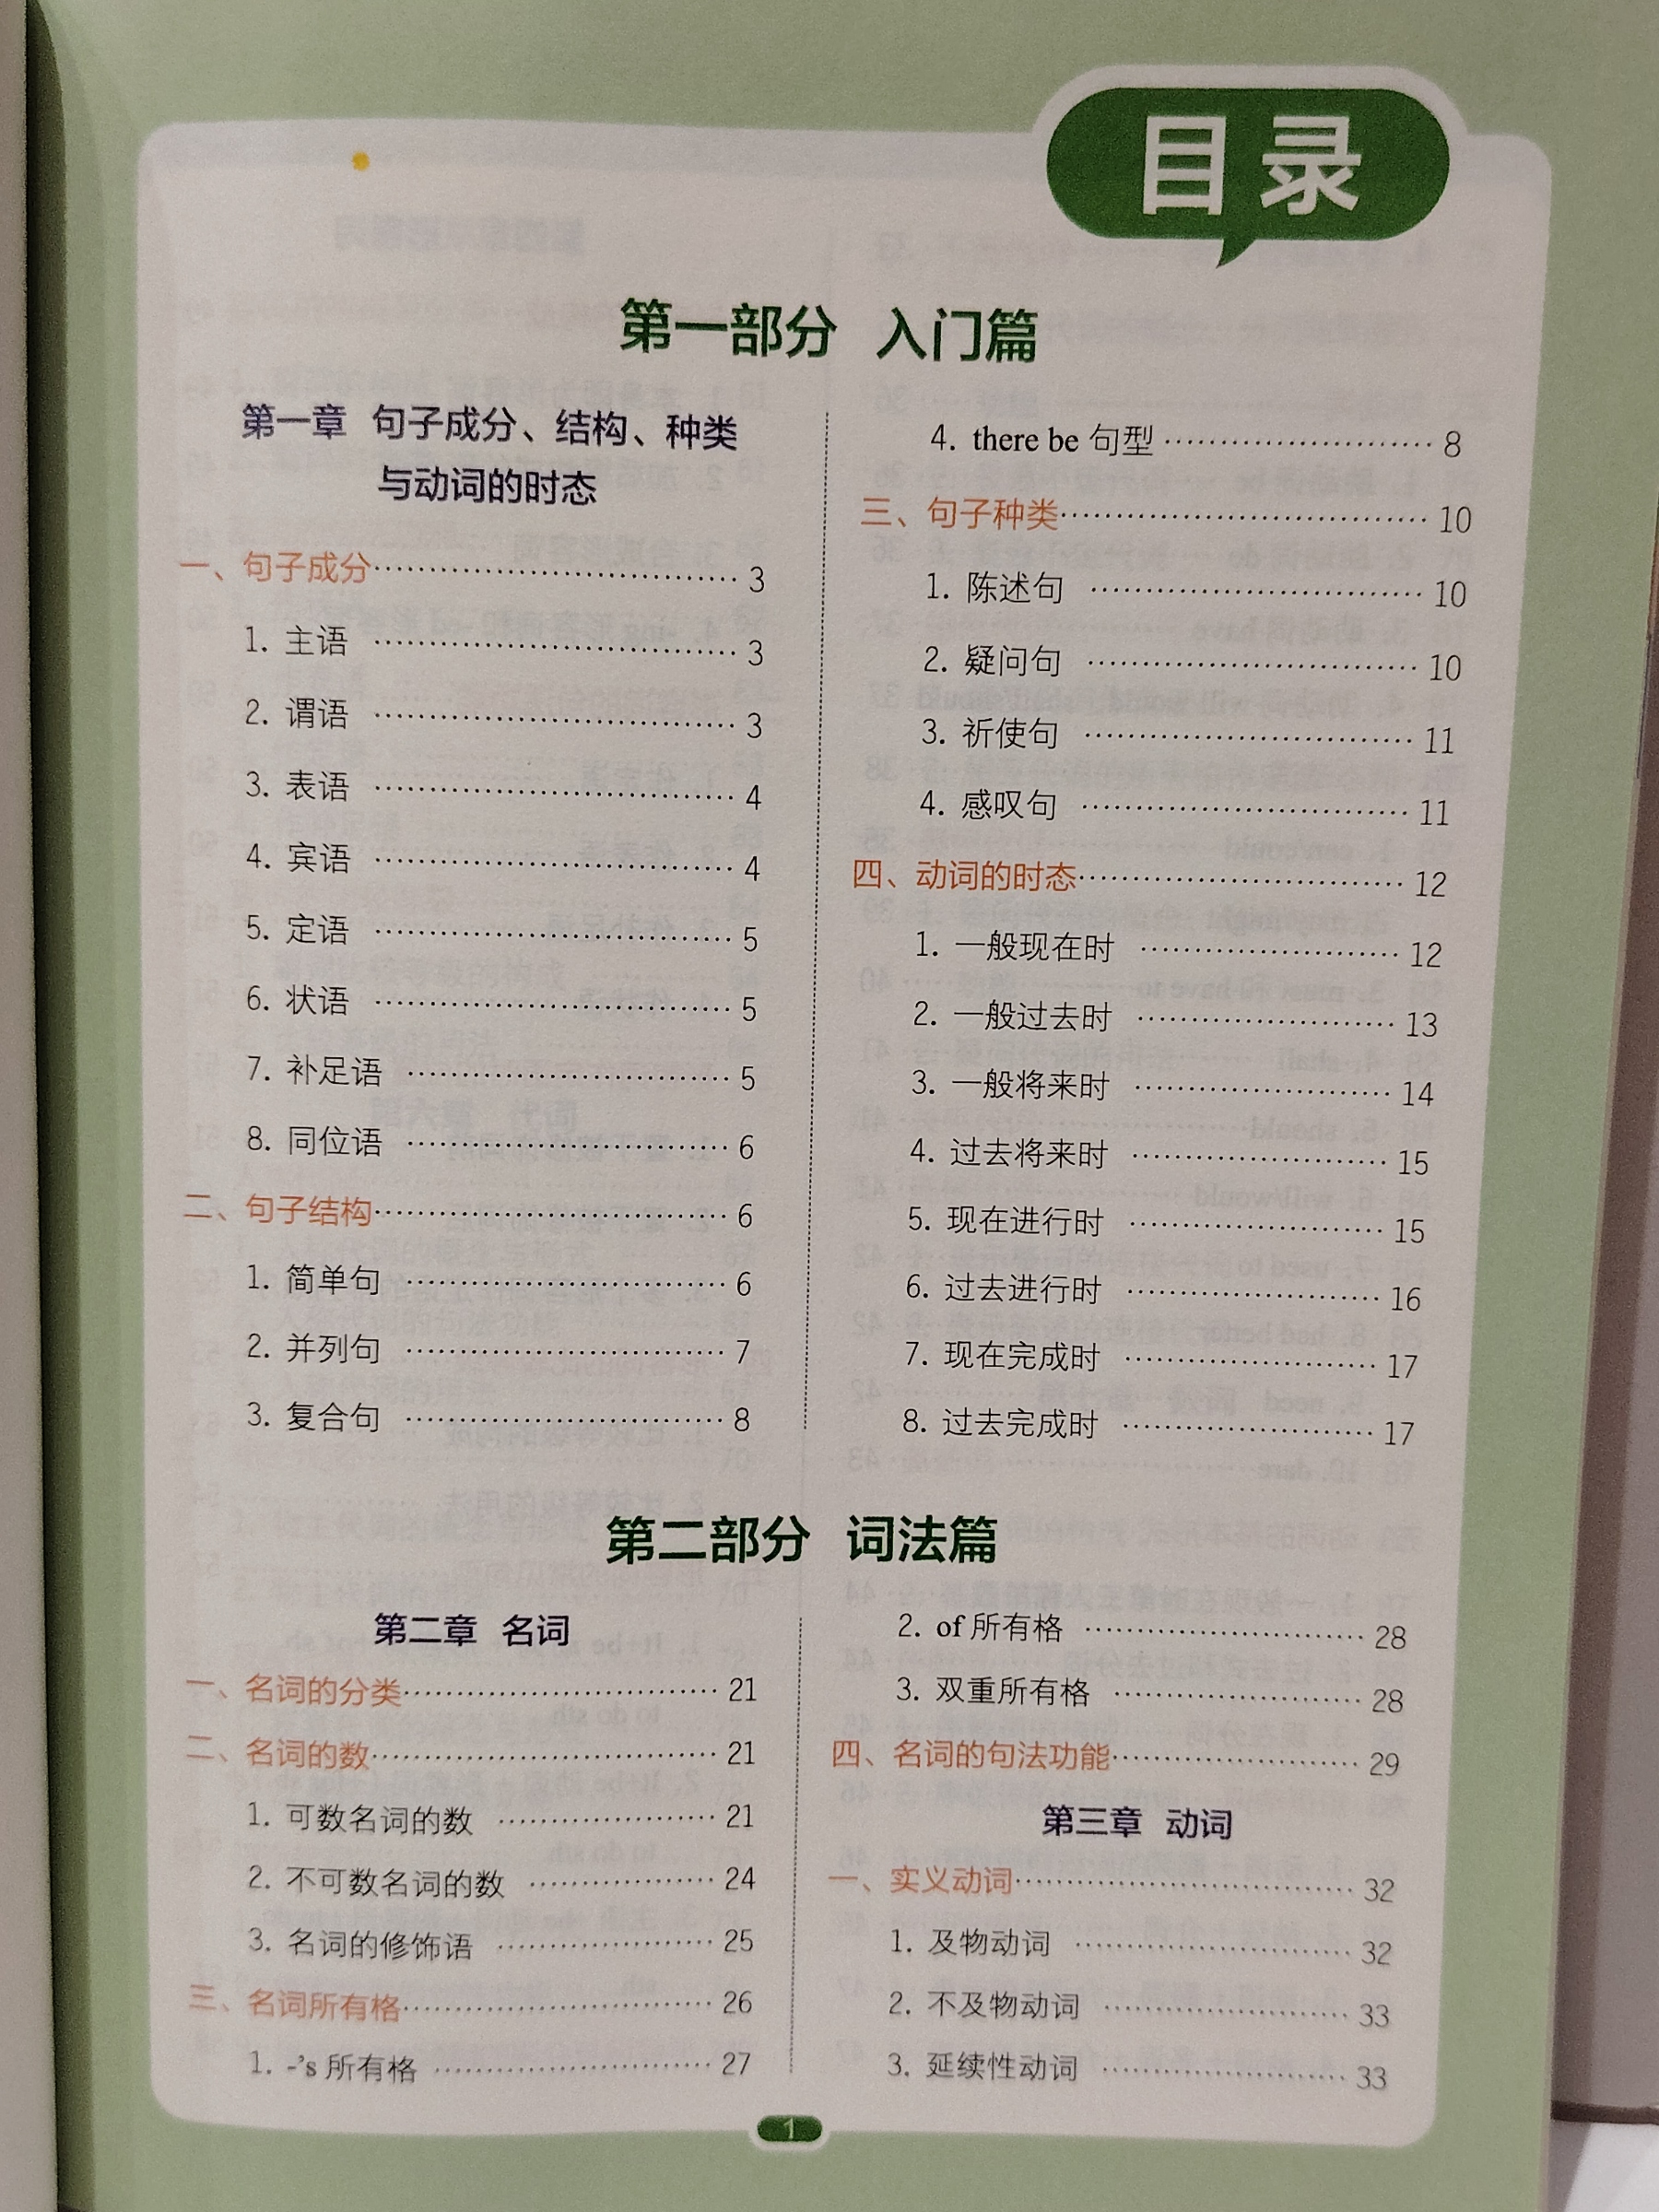 目录
第一部分 入门篇
第一章 句子成分、结构、种类
与动词的时态
一、句子成分 3
1. 主语 3
2. 谓语 3
3. 表语 4
4. 宾语 4
5. 定语 5
6. 状语 5
7. 补足语 5
8. 同位语 6
二、句子结构 6
1. 简单句 6
2. 并列句 7
3. 复合句 8
4. there be 句型 8
三、句子种类 10
1. 陈述句 10
2. 疑问句 10
3. 祈使句 11
4. 感叹句 11
四、动词的时态 12
1. 一般现在时 12
2. 一般过去时 13
3. 一般将来时 14
4. 过去将来时 15
5. 现在进行时 15
6. 过去进行时 16
7. 现在完成时 17
8. 过去完成时 17
第二部分 词法篇
第二章 名词
一、名词的分类 21
二、名词的数 21
1. 可数名词的数 21
2. 不可数名词的数 24
3. 名词的修饰语 25
三、名词所有格 26
1. -’s 所有格 27
2. of 所有格 28
3. 双重所有格 28
四、名词的句法功能 29
第三章 动词
一、实义动词 32
1. 及物动词 32
2. 不及物动词 33
3. 延续性动词 33
1